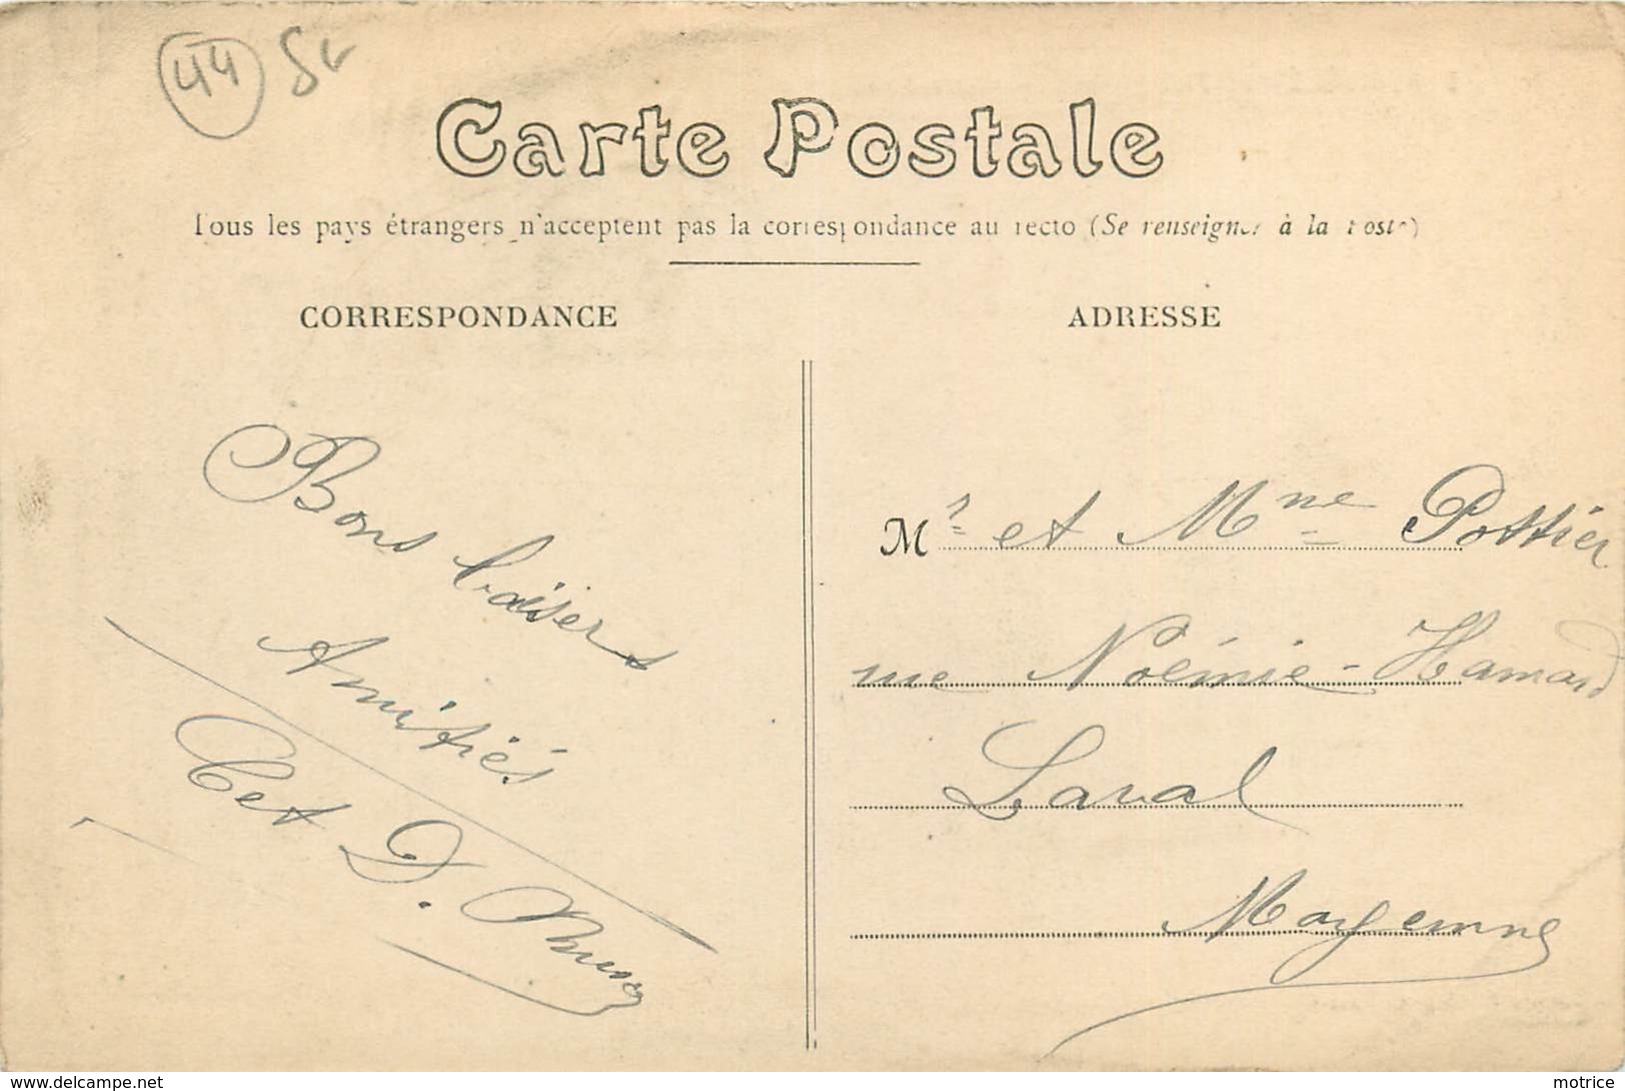 44
Carte Postale
Tous les pays étrangers n'acceptent pas la correspondance au recto (Se renseigner à la Poste)
CORRESPONDANCE
ADRESSE
Bons baisers
Amitiés
et D.
Mr et Mme Pottier
rue Noémie-Hamard
Laval
Mayenne
www.delcampe.net
motrice